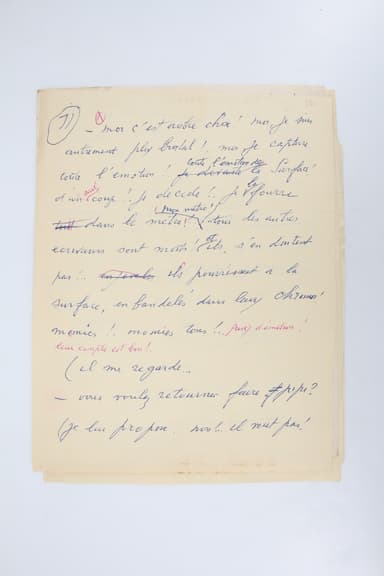 11
— moi c'est autre chose! moi, je suis
autrement plus brutal! moi, je capture
toute l'émotion! toute l'émotion de la Surface
d'un seul coup! Je décide!.. Je la fourre
dans le métro! mon métro! tous les autres
écrivains sont morts! et ils s'en doutent
pas!.. ils pourrissent à la
surface, en bandelés dans leurs chromos!
momies!. momies tous!.. privés d'émotion!
leur compte est bon!.
(il me regarde...
— vous voulez retourner faire pipi?
(je lui propose. non!. il veut pas!